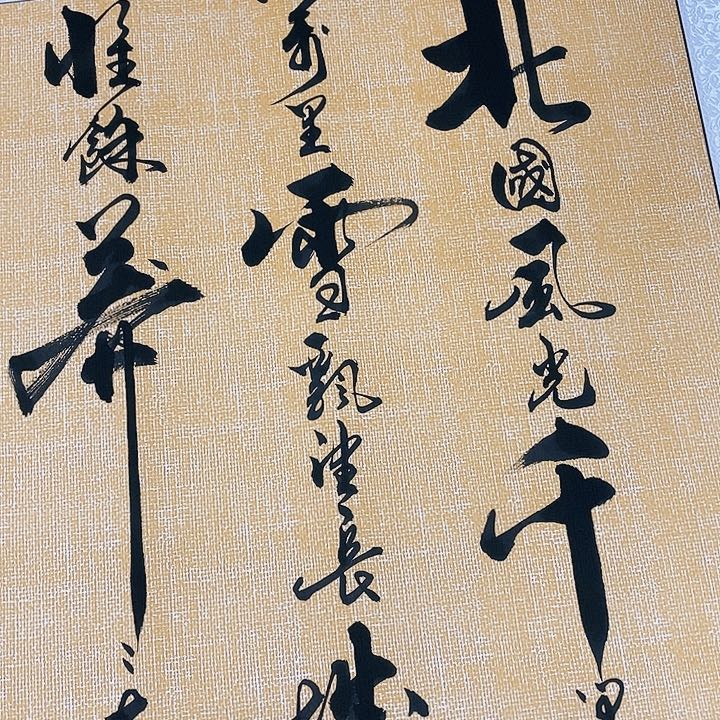 北國風光千里
萬里雪飄望長城
惟餘莽〻大